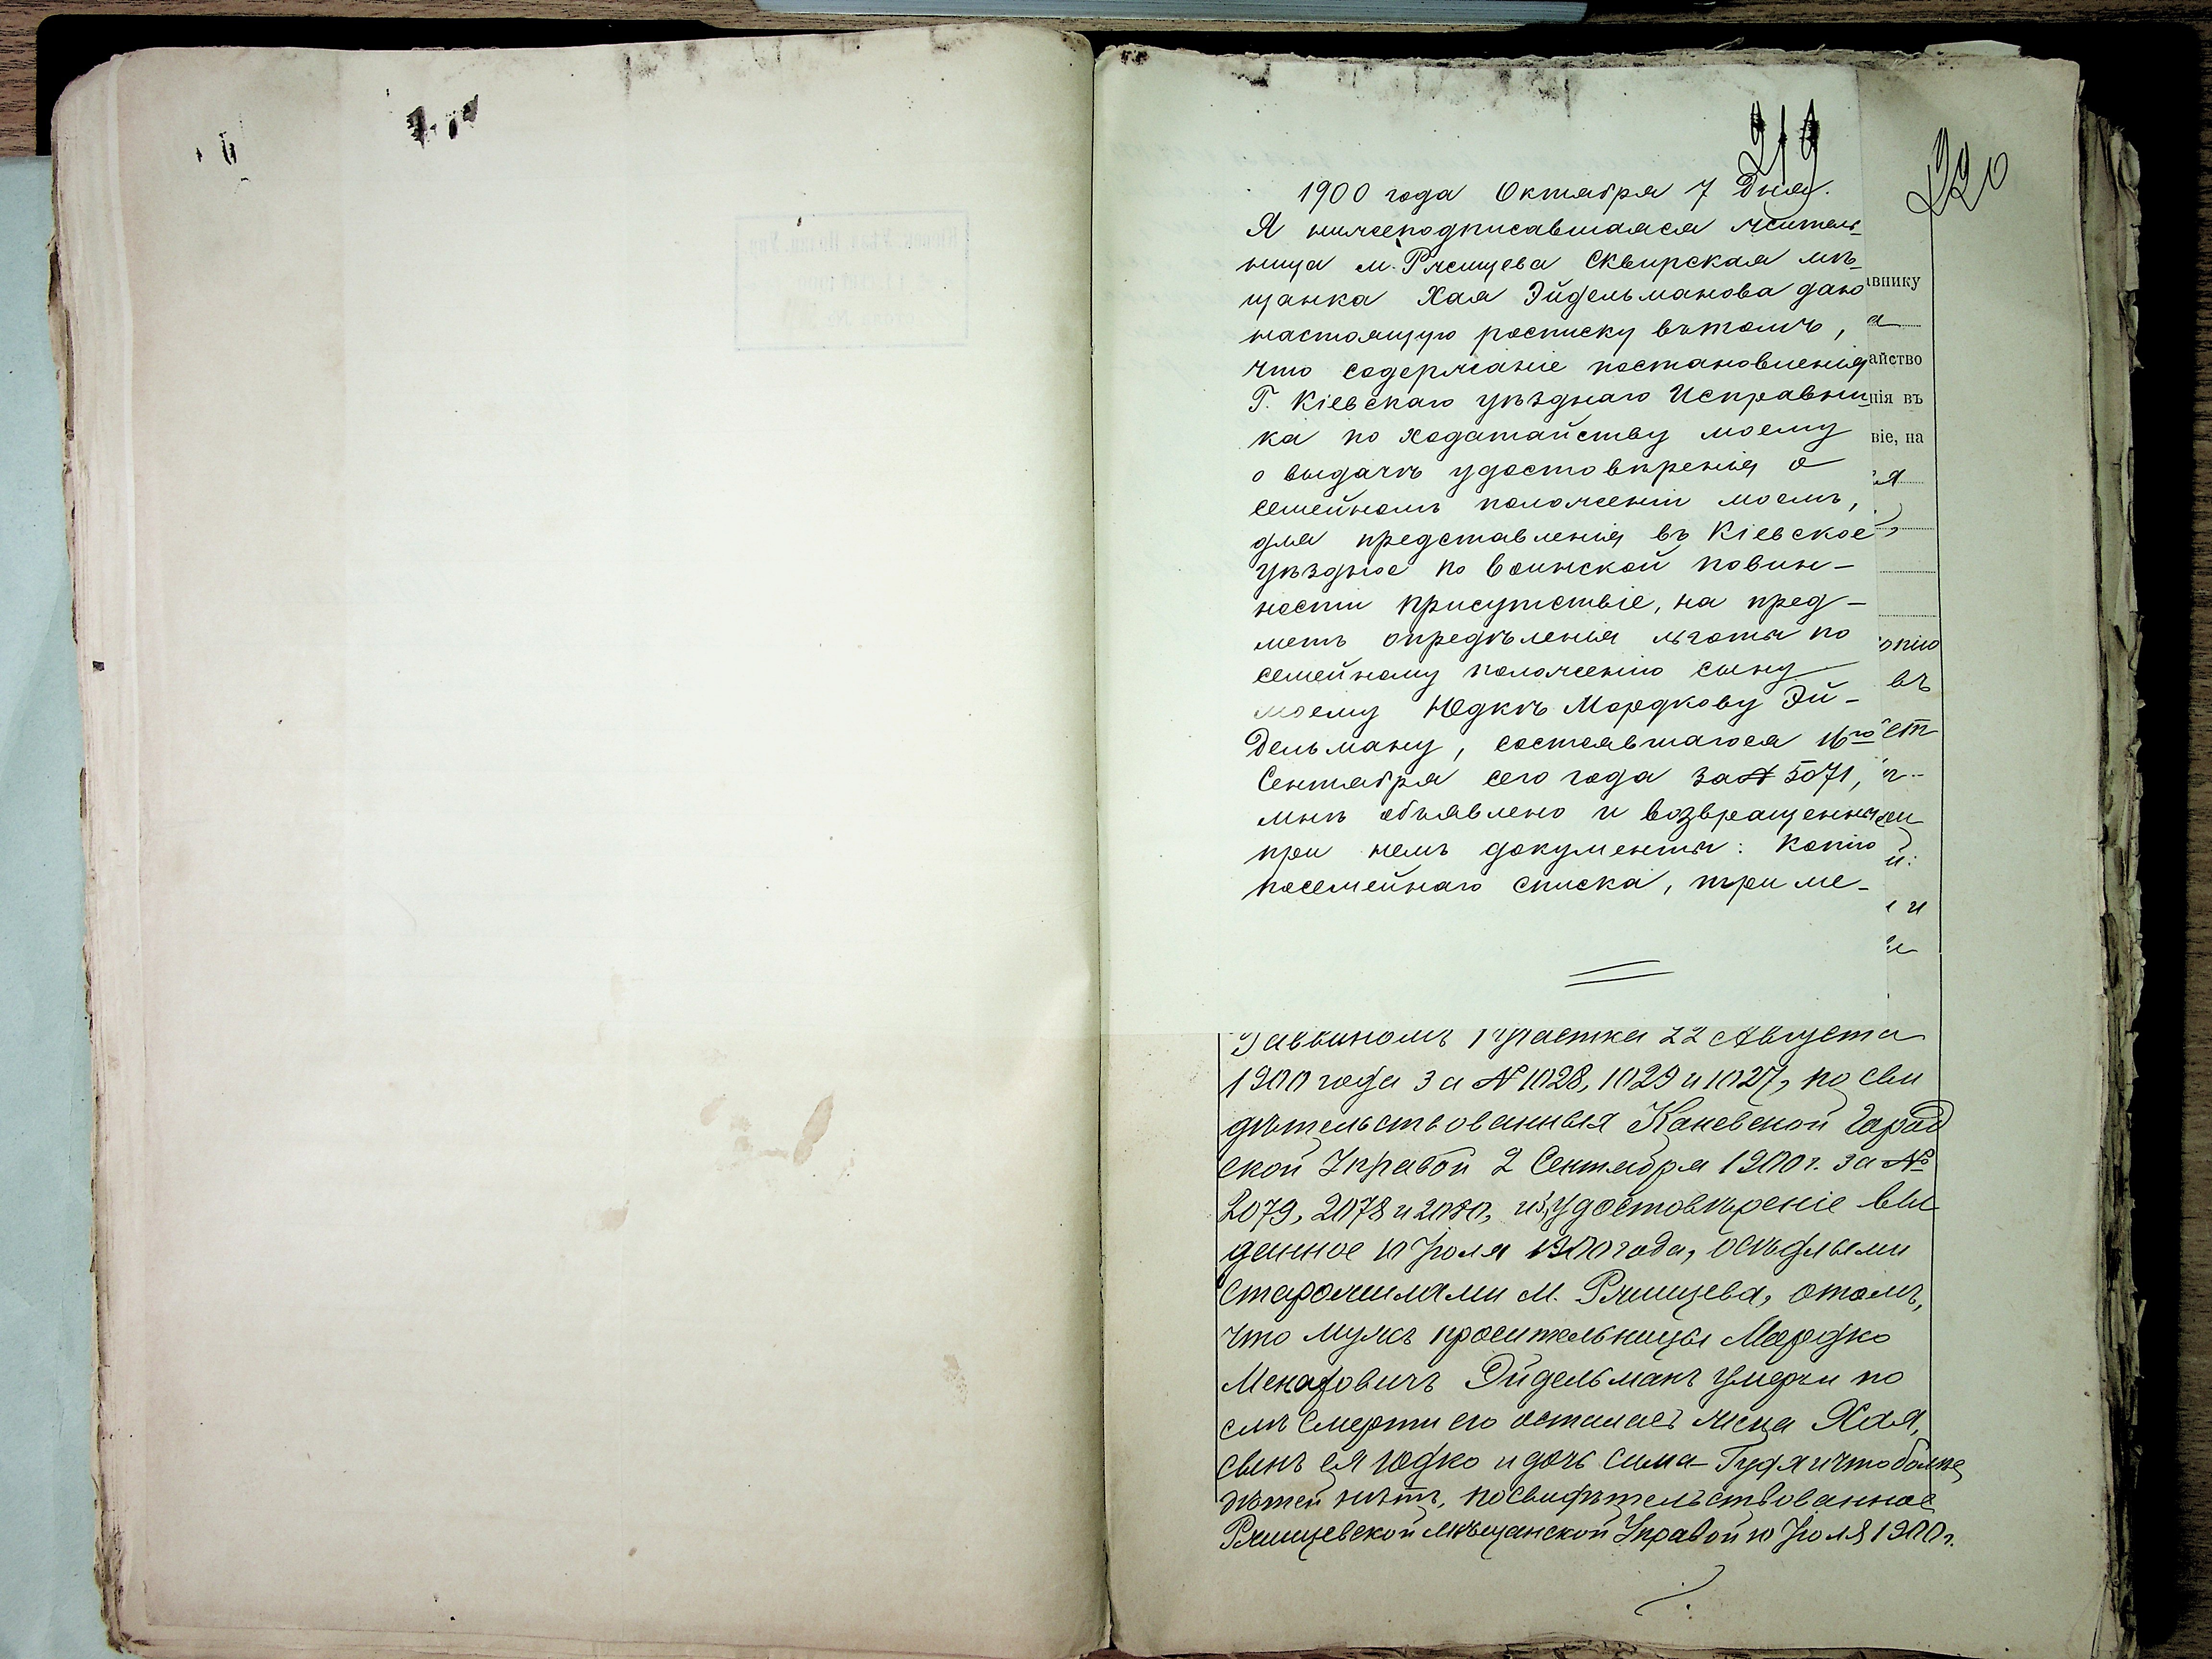 219
220
1900 года Октября 7 Дня.
Я нижеподписавшаяся житель-
ница м. Ржищева Сквирская мѣ-
щанка Хая Эйдельманова даю
настоящую росписку вътомъ,
что содержаніе постановленія
Г. Кіевскаго уѣзднаго Исправни-
ка по ходатайству моему
о выдачѣ удостовѣренія о
семейномъ положеніи моемъ,
для представленія въ Кіевское
уѣздное по воинской повин-
ности присутствіе, на пред-
метъ опредѣленія льготы по
семейному положенію сыну
моему Юдкѣ Мордкову Эй-
дельману, состоявшагося 16го
Сентября сего года за № 5071,
мнѣ объявлено и возвращенныя
при немъ документы: копію
посемейнаго списка, три ме-
авнику
а
айство
нія въ
віе, на
опію
въ
Раввиномъ 1 участка 22 Августа
1900 года за № 1028, 1029 и 1027, по сви
дѣтельствованныя Каневской Город
ской Управой 2 Сентября 1900 г. за №
2079, 2078 и 2080, и 3, удостовѣреніе вы
данное 10 Іюля 1900 года, осѣдлыми
старожилами м. Ржищева, отомъ,
что мужъ просительницы Мордко
Эйдельманъ умеръ и по
слѣ смерти его осталась жена Хая,
сынъ ея Юдко и дочь Сима-Гудя и что болѣе
дѣтей нѣтъ, посвидѣтельствованное
Ржищевской мѣщанской Управой 10 Іюля 1900 г.